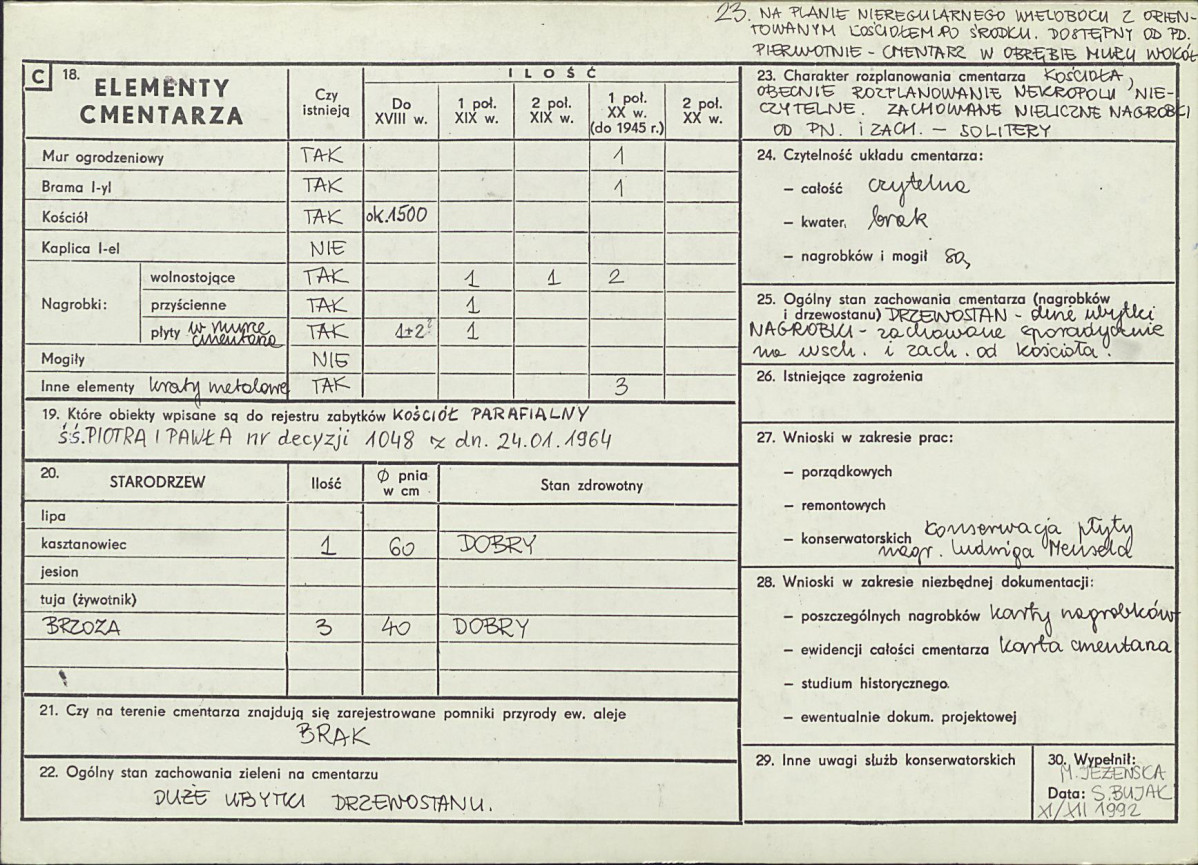 23. NA PLANIE NIEREGULARNEGO WIELOBOKU Z ORIEN-
TOWANYM KOŚCIOŁEM PO ŚRODKU. DOSTĘPNY OD PD.
PIERWOTNIE - CMENTARZ W OBRĘBIE MURU WOKÓŁ
C 18. ELEMENTY CMENTARZA
Czy istnieją
ILOŚĆ
Do XVIII w.
1 poł. XIX w.
2 poł. XIX w.
1 poł. XX w. (do 1945 r.)
2 poł. XX w.
Mur ogrodzeniowy TAK 1
Brama I-yl TAK 1
Kościół TAK ok.1500
Kaplica I-el NIE
Nagrobki:
wolnostojące TAK 1 1 2
przyścienne TAK 1
płyty w murze cmentarza TAK 1+2? 1
Mogiły NIE
Inne elementy kraty metalowe TAK 3
19. Które obiekty wpisane są do rejestru zabytków KOŚCIÓŁ PARAFIALNY
ŚŚ. PIOTRA I PAWŁA nr decyzji 1048 z dn. 24.01.1964
20. STARODRZEW Ilość Ø pnia w cm Stan zdrowotny
lipa
kasztanowiec 1 60 DOBRY
jesion
tuja (żywotnik)
BRZOZA 3 40 DOBRY
21. Czy na terenie cmentarza znajdują się zarejestrowane pomniki przyrody ew. aleje
BRAK
22. Ogólny stan zachowania zieleni na cmentarzu
DUŻE UBYTKI DRZEWOSTANU.
23. Charakter rozplanowania cmentarza KOŚCIOŁA,
OBECNIE ROZPLANOWANIE NEKROPOLII NIE-
CZYTELNE. ZACHOWANE NIELICZNE NAGROBKI
OD PN. i ZACH. - SOLITERY
24. Czytelność układu cmentarza:
- całość czytelna
- kwater, brak
- nagrobków i mogił są,
25. Ogólny stan zachowania cmentarza (nagrobków
i drzewostanu) DRZEWOSTAN - duże ubytki
NAGROBKI - zachowane sporadycznie
na wsch. i zach. od kościoła.
26. Istniejące zagrożenia
27. Wnioski w zakresie prac:
- porządkowych
- remontowych
- konserwatorskich konserwacja płyty
nagr. Ludwiga Mensela
28. Wnioski w zakresie niezbędnej dokumentacji:
- poszczególnych nagrobków karty nagrobków
- ewidencji całości cmentarza karta cmentarza
- studium historycznego.
- ewentualnie dokum. projektowej
29. Inne uwagi służb konserwatorskich
30. Wypełnił:
M. JEŻEŃSKA
Data: S. BUJAK
XI/XII 1992